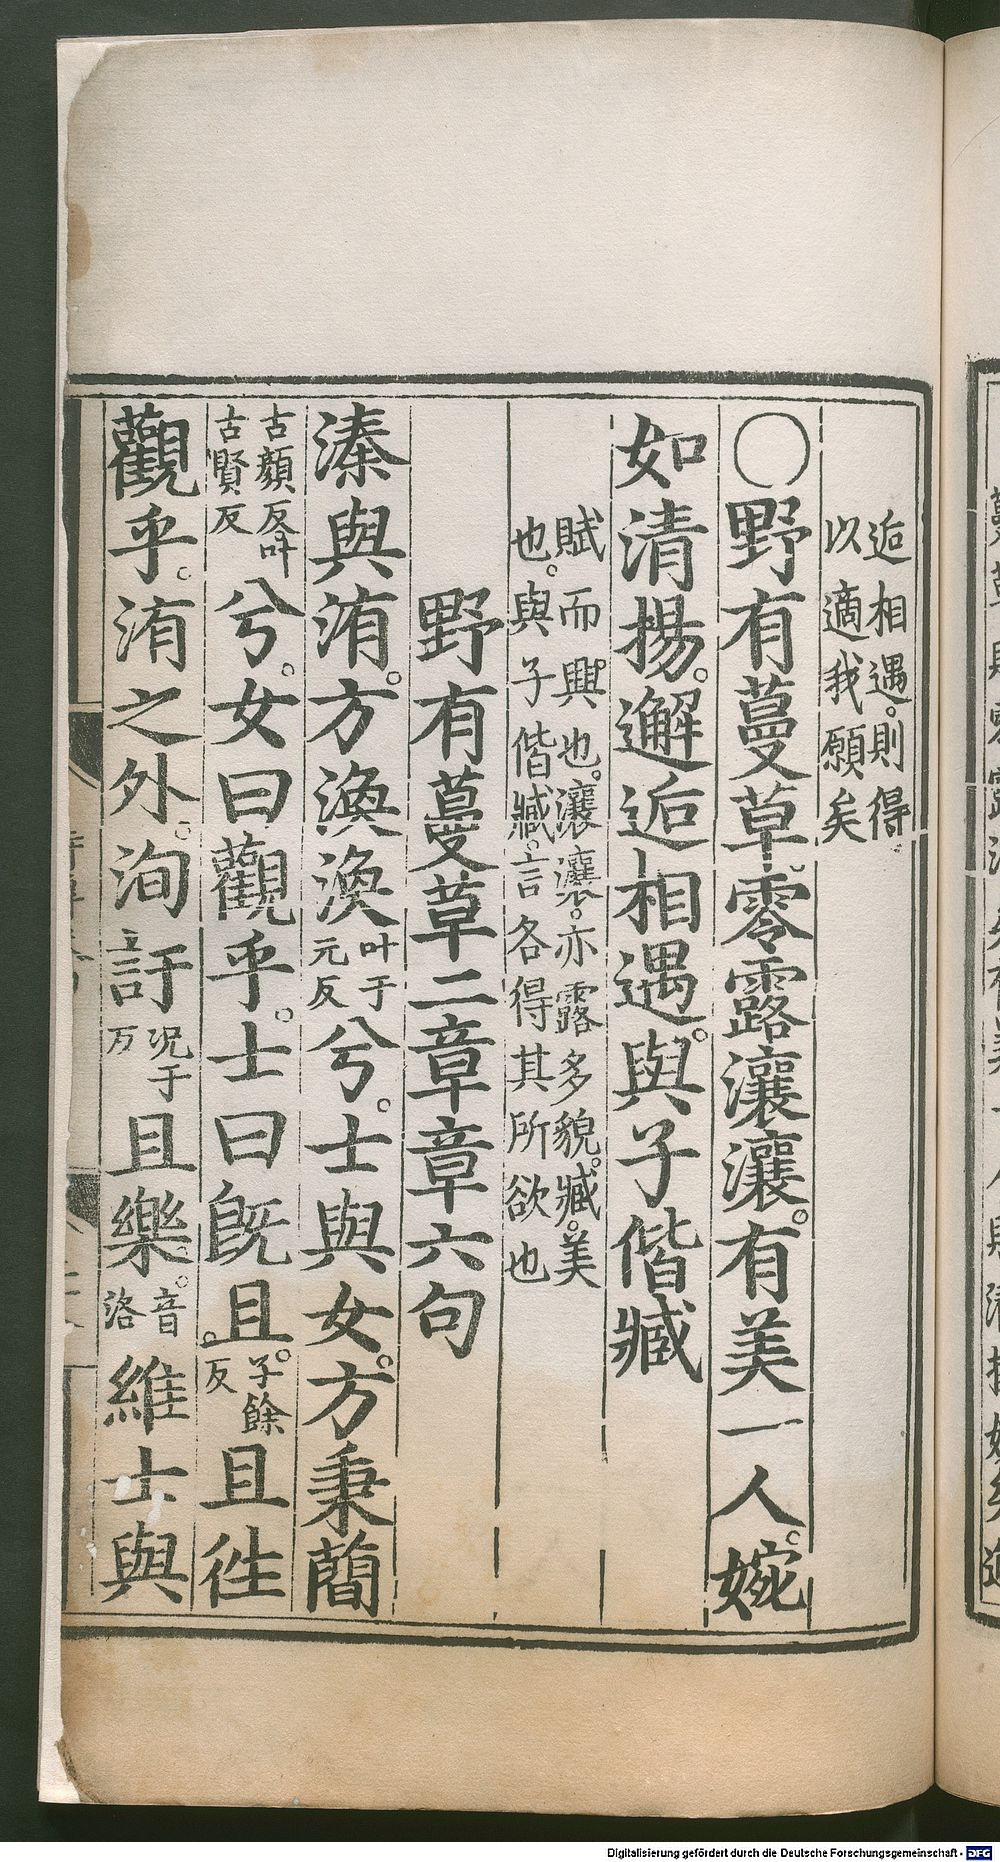 逅相遇。則得
以適我願矣
○野有蔓草。零露瀼瀼。有美一人。婉
如清揚。邂逅相遇。與子偕臧
賦而興也。瀼瀼。亦露多貌。臧。美
也。與子偕臧。言各得其所欲也
野有蔓草二章章六句
溱與洧。方渙渙叶于元反兮。士與女。方秉蕑
古顏反叶古賢反兮。女曰觀乎。士曰旣且。子餘反。且徃
觀乎。洧之外。洵訏況于反且樂。音洛維士與
Digitalisierung gefördert durch die Deutsche Forschungsgemeinschaft - DFG